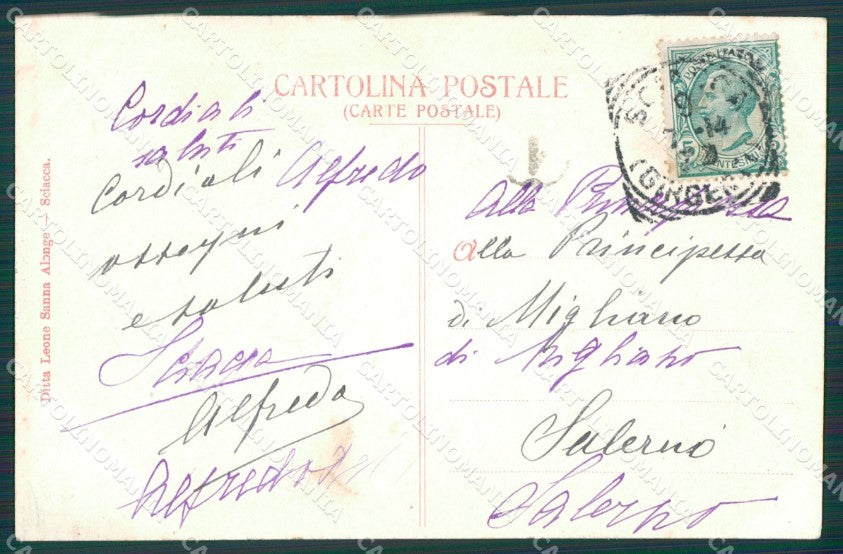 CARTOLINA POSTALE
(CARTE POSTALE)
Cordiali
saluti
Alfredo
Cordiali
ossequi
e saluti
Sciacca
Alfredo
Alfredo
Ditta Leone Sanna Alonge — Sciacca.
5
14
(GIRGEN
Alla Principessa
alla Principessa
di Migliano
di Migliano
Salerno
Salerno
CARTOLINOMANIA